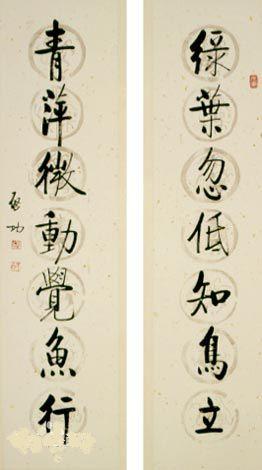 绿葉忽低知鳥立
青萍微動覺魚行
啟功